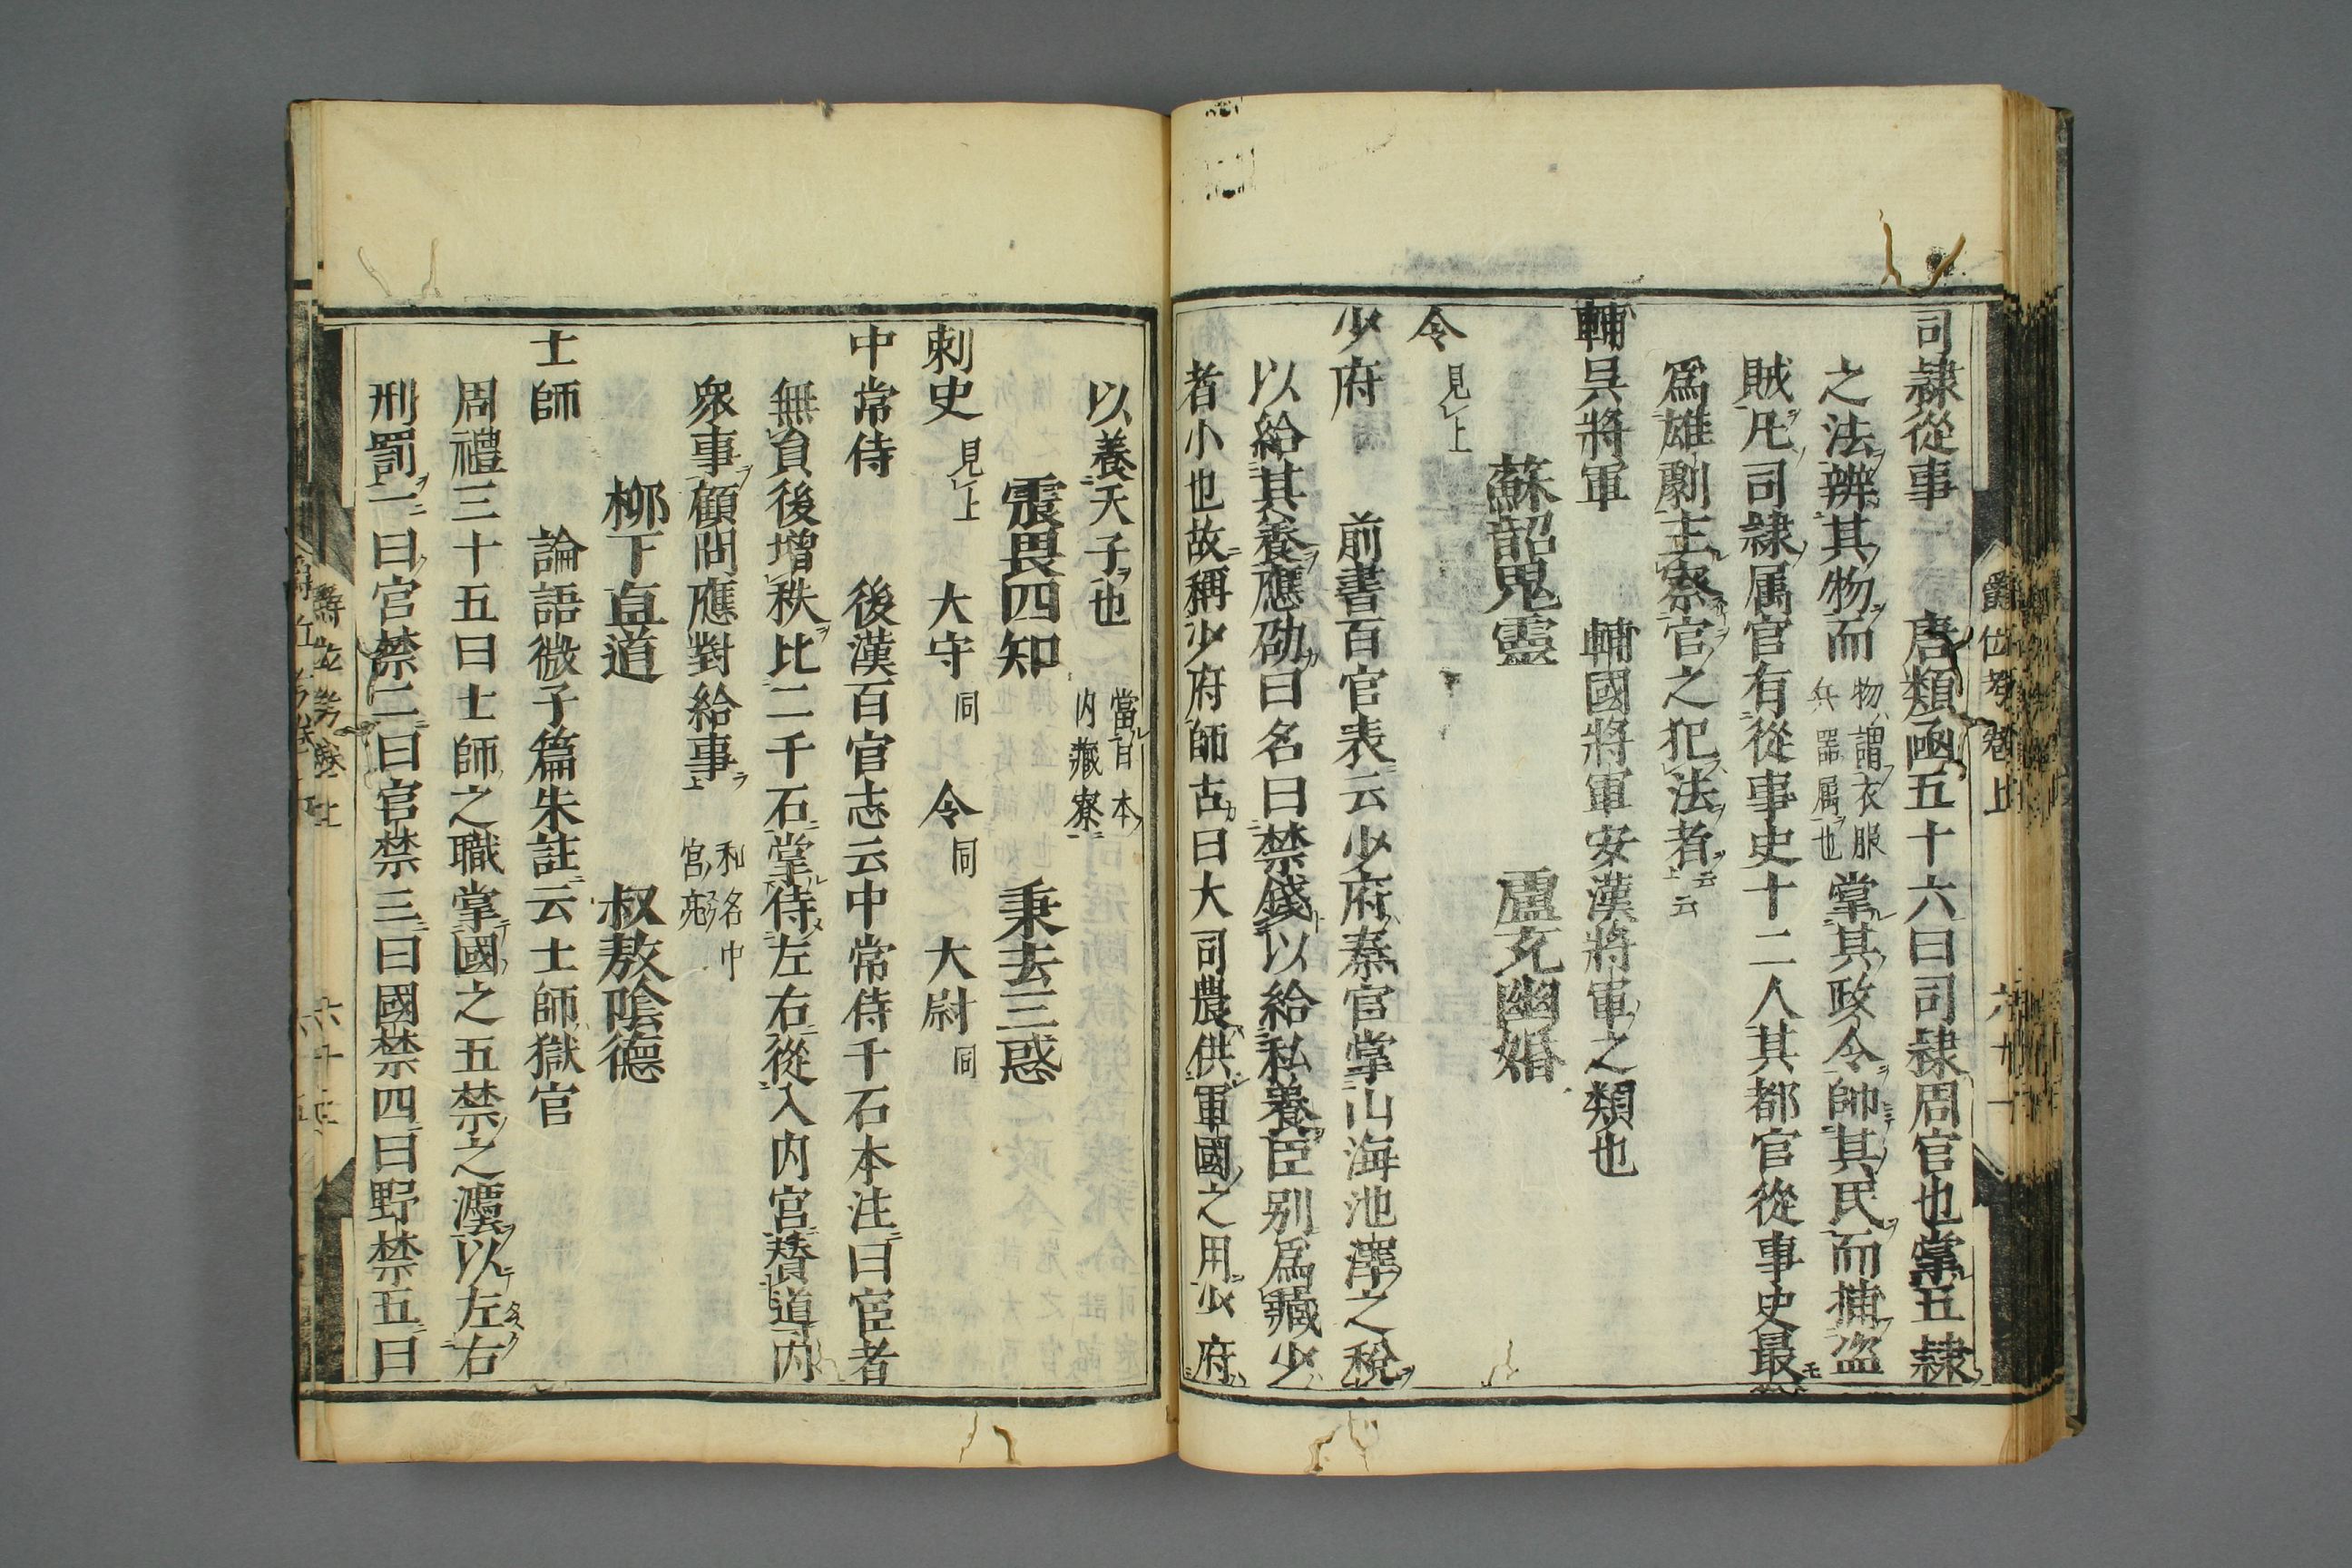 司隷從事　唐類函五十六曰司隷周官也掌五隷
之法辨其物而物謂衣服兵器属也掌其政令帥其民而捕盗
賊凡司隷属官有從事史十二人其都官從事史最
爲雄劇主察官之犯法者云云
輔呉將軍　輔國將軍安漢將軍之類也
蘇韶鬼靈　盧充幽婚
令見上
少府　前書百官表云少府秦官掌山海池澤之稅
以給其養應劭曰名曰禁錢以給私養臣别爲藏少
者小也故稱少府師古曰大司農供軍國之用少府
以養天子也當日本内藏寮
震畏四知　秉去三惑
刺史見上　大守同　令同　大尉同
中常侍　後漢百官志云中常侍千石本注曰宦者
無員後增秩比二千石掌侍左右從入内宮賛道内
衆事顧問應對給事和名中宮亮
柳下直道　叔敖陰德
士師　論語微子篇朱註云士師獄官
周禮三十五曰士師之職掌國之五禁之灋以左右
刑罰一曰宮禁二曰官禁三曰國禁四曰野禁五曰
爵位考卷上